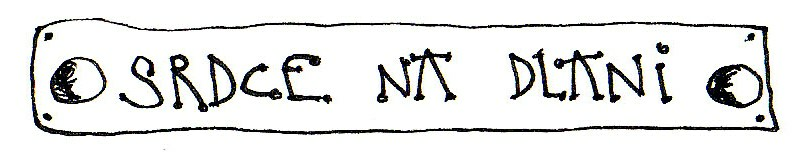 SRDCE NA DLANI